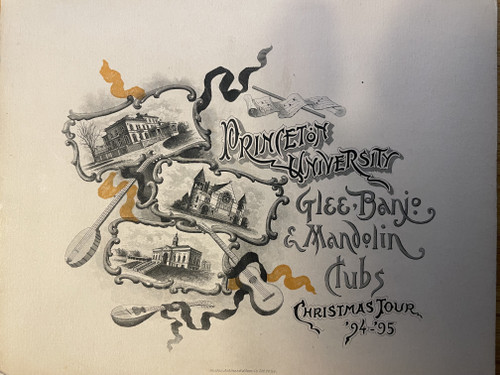 PRINCETON
UNIVERSITY
GLEE·BANJO
& MANDOLIN
CLUBS
CHRISTMAS TOUR
'94-'95